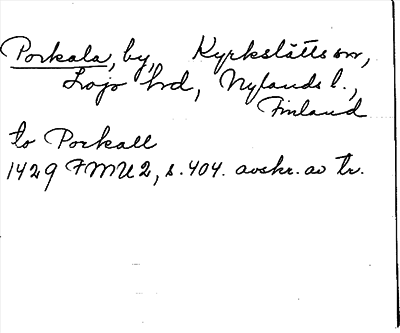 Porkala, by, Kyrkslätts sn,
Lojo hrd, Nylands l.,
Finland
to Porkall
1429 FMU 2, s. 404. avskr. av tr.